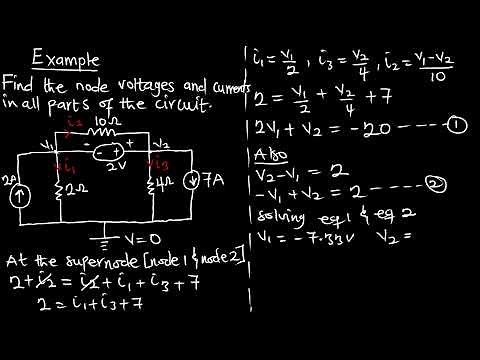 Example
Find the node voltages and currents
in all parts of the circuit.
i₂
10Ω
V₁
- +
V₂
2V
i₁
i₃
2A
2Ω
4Ω
7A
V=0
At the supernode [node 1 & node 2]
2+i₂ = i₂+i₁+i₃+7
2 = i₁+i₃+7
i₁=V₁/2, i₃=V₂/4, i₂=V₁-V₂/10
2 = V₁/2 + V₂/4 + 7
2V₁ + V₂ = -20 ---- ①
Also
V₂-V₁ = 2
-V₁+V₂ = 2 ---- ②
Solving eq 1 & eq 2
V₁ = -7.33V V₂ =